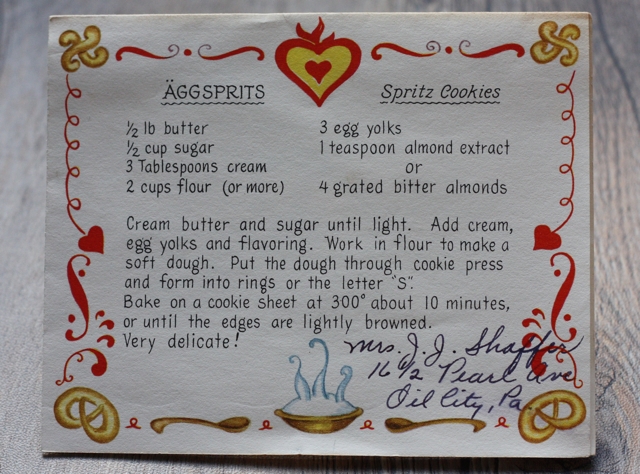 ÄGGSPRITS
Spritz Cookies
½ lb butter
½ cup sugar
3 Tablespoons cream
2 cups flour (or more)
3 egg yolks
1 teaspoon almond extract
or
4 grated bitter almonds
Cream butter and sugar until light. Add cream,
egg yolks and flavoring. Work in flour to make a
soft dough. Put the dough through cookie press
and form into rings or the letter "S".
Bake on a cookie sheet at 300° about 10 minutes,
or until the edges are lightly browned.
Very delicate!
Mrs. J. J. Shaffer
16 ½ Pearl Ave
Oil City, Pa.